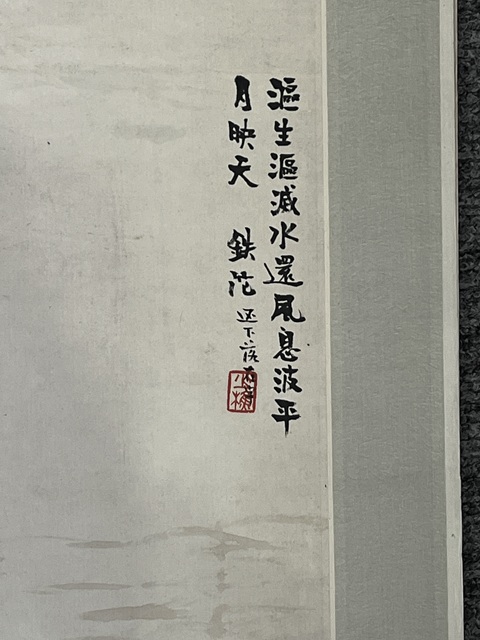 漚生漚滅水還風息波平
月映天 鉄茫